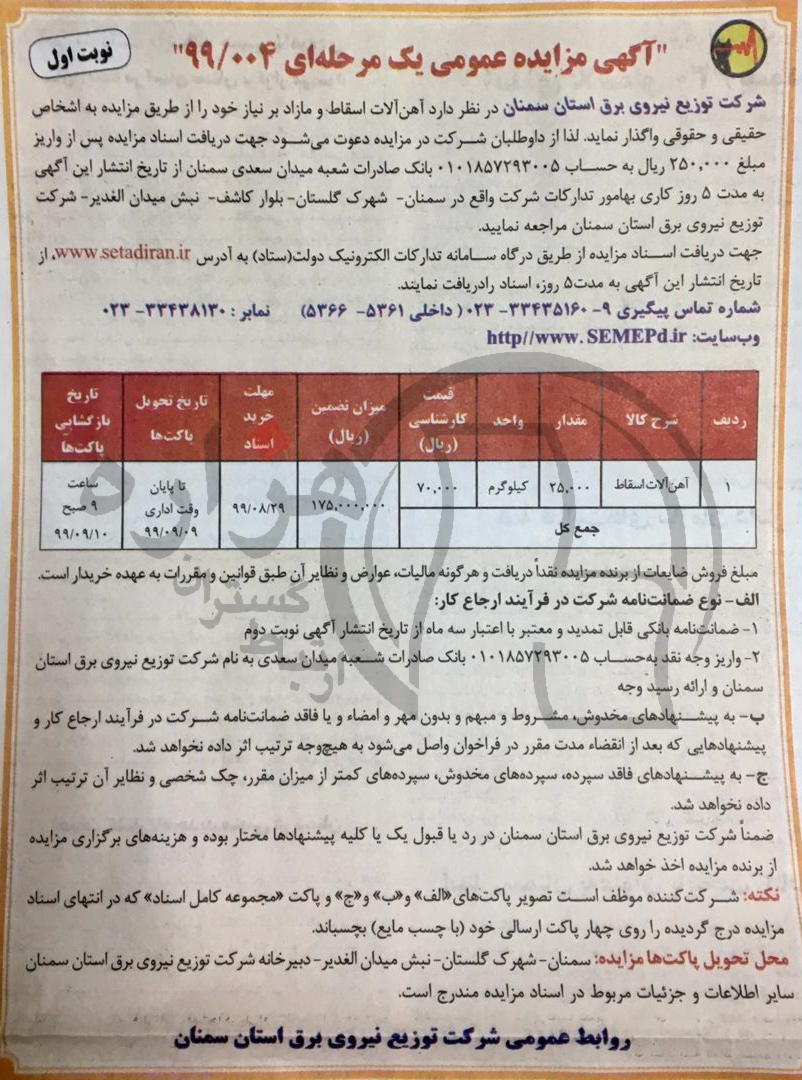 "آگهی مزایده عمومی یک مرحله‌ای ۹۹/۰۰۴"
نوبت اول
شرکت توزیع نیروی برق استان سمنان در نظر دارد آهن‌آلات اسقاط و مازاد بر نیاز خود را از طریق مزایده به اشخاص
حقیقی و حقوقی واگذار نماید. لذا از داوطلبان شرکت در مزایده دعوت می‌شود جهت دریافت اسناد مزایده پس از واریز
مبلغ ۲۵۰,۰۰۰ ریال به حساب ۰۱۰۱۸۵۷۲۹۳۰۰۵ بانک صادرات شعبه میدان سعدی سمنان از تاریخ انتشار این آگهی
به مدت ۵ روز کاری بهامور تدارکات شرکت واقع در سمنان- شهرک گلستان- بلوار کاشف- نبش میدان الغدیر- شرکت
توزیع نیروی برق استان سمنان مراجعه نمایید.
جهت دریافت اسناد مزایده از طریق درگاه سامانه تدارکات الکترونیک دولت(ستاد) به آدرس www.setadiran.ir، از
تاریخ انتشار این آگهی به مدت۵ روز، اسناد رادریافت نمایند.
شماره تماس پیگیری ۹- ۳۳۴۳۵۱۶۰- ۰۲۳( داخلی ۵۳۶۱- ۵۳۶۶) نمابر : ۳۳۴۳۸۱۳۰- ۰۲۳
وب‌سایت: http//www. SEMEPd.ir
ردیف شرح کالا مقدار واحد قیمت کارشناسی (ریال) میزان تضمین (ریال) مهلت خرید اسناد تاریخ تحویل پاکت‌ها تاریخ بازگشایی پاکت‌ها
۱ آهن‌آلات اسقاط ۲۵,۰۰۰ کیلوگرم ۷۰,۰۰۰ ۱۷۵,۰۰۰,۰۰۰ ۹۹/۰۸/۲۹ تا پایان وقت اداری ۹۹/۰۹/۰۹ ساعت ۹ صبح ۹۹/۰۹/۱۰
جمع کل
مبلغ فروش ضایعات از برنده مزایده نقداً دریافت و هرگونه مالیات، عوارض و نظایر آن طبق قوانین و مقررات به عهده خریدار است.
الف- نوع ضمانت‌نامه شرکت در فرآیند ارجاع کار:
۱- ضمانت‌نامه بانکی قابل تمدید و معتبر با اعتبار سه ماه از تاریخ انتشار آگهی نوبت دوم
۲- واریز وجه نقد به‌حساب ۰۱۰۱۸۵۷۲۹۳۰۰۵ بانک صادرات شعبه میدان سعدی به نام شرکت توزیع نیروی برق استان
سمنان و ارائه رسید وجه
ب- به پیشنهادهای مخدوش، مشروط و مبهم و بدون مهر و امضاء و یا فاقد ضمانت‌نامه شرکت در فرآیند ارجاع کار و
پیشنهادهایی که بعد از انقضاء مدت مقرر در فراخوان واصل می‌شود به هیچ‌وجه ترتیب اثر داده نخواهد شد.
ج- به پیشنهادهای فاقد سپرده، سپرده‌های مخدوش، سپرده‌های کمتر از میزان مقرر، چک شخصی و نظایر آن ترتیب اثر
داده نخواهد شد.
ضمناً شرکت توزیع نیروی برق استان سمنان در رد یا قبول یک یا کلیه پیشنهادها مختار بوده و هزینه‌های برگزاری مزایده
از برنده مزایده اخذ خواهد شد.
نکته: شرکت‌کننده موظف است تصویر پاکت‌های«الف» و«ب» و«ج» و پاکت «مجموعه کامل اسناد» که در انتهای اسناد
مزایده درج گردیده را روی چهار پاکت ارسالی خود (با چسب مایع) بچسباند.
محل تحویل پاکت‌ها مزایده: سمنان- شهرک گلستان- نبش میدان الغدیر- دبیرخانه شرکت توزیع نیروی برق استان سمنان
سایر اطلاعات و جزئیات مربوط در اسناد مزایده مندرج است.
روابط عمومی شرکت توزیع نیروی برق استان سمنان